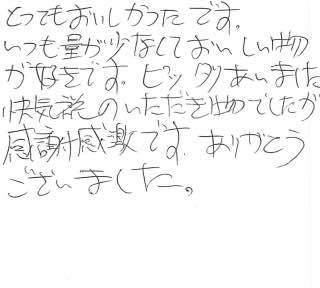 とってもおいしかったです。
いつも量が少なくしておいしい物
が好きです。ピッタリあいました
快気祝のいただき物でしたが
感謝感激です。ありがとう
ございました。